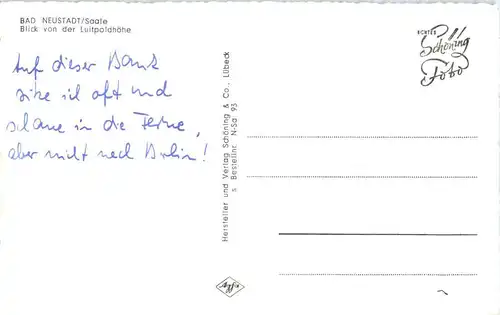 BAD NEUSTADT/Saale
Blick von der Luitpoldhöhe
Auf dieser Bank
sitze ich oft und
schaue in die Ferne,
aber nicht nach Berlin!
Hersteller und Verlag Schöning & Co., Lübeck
Bestellnr. N-Sa 93
ECHTES
Schöning
Foto
Agfa